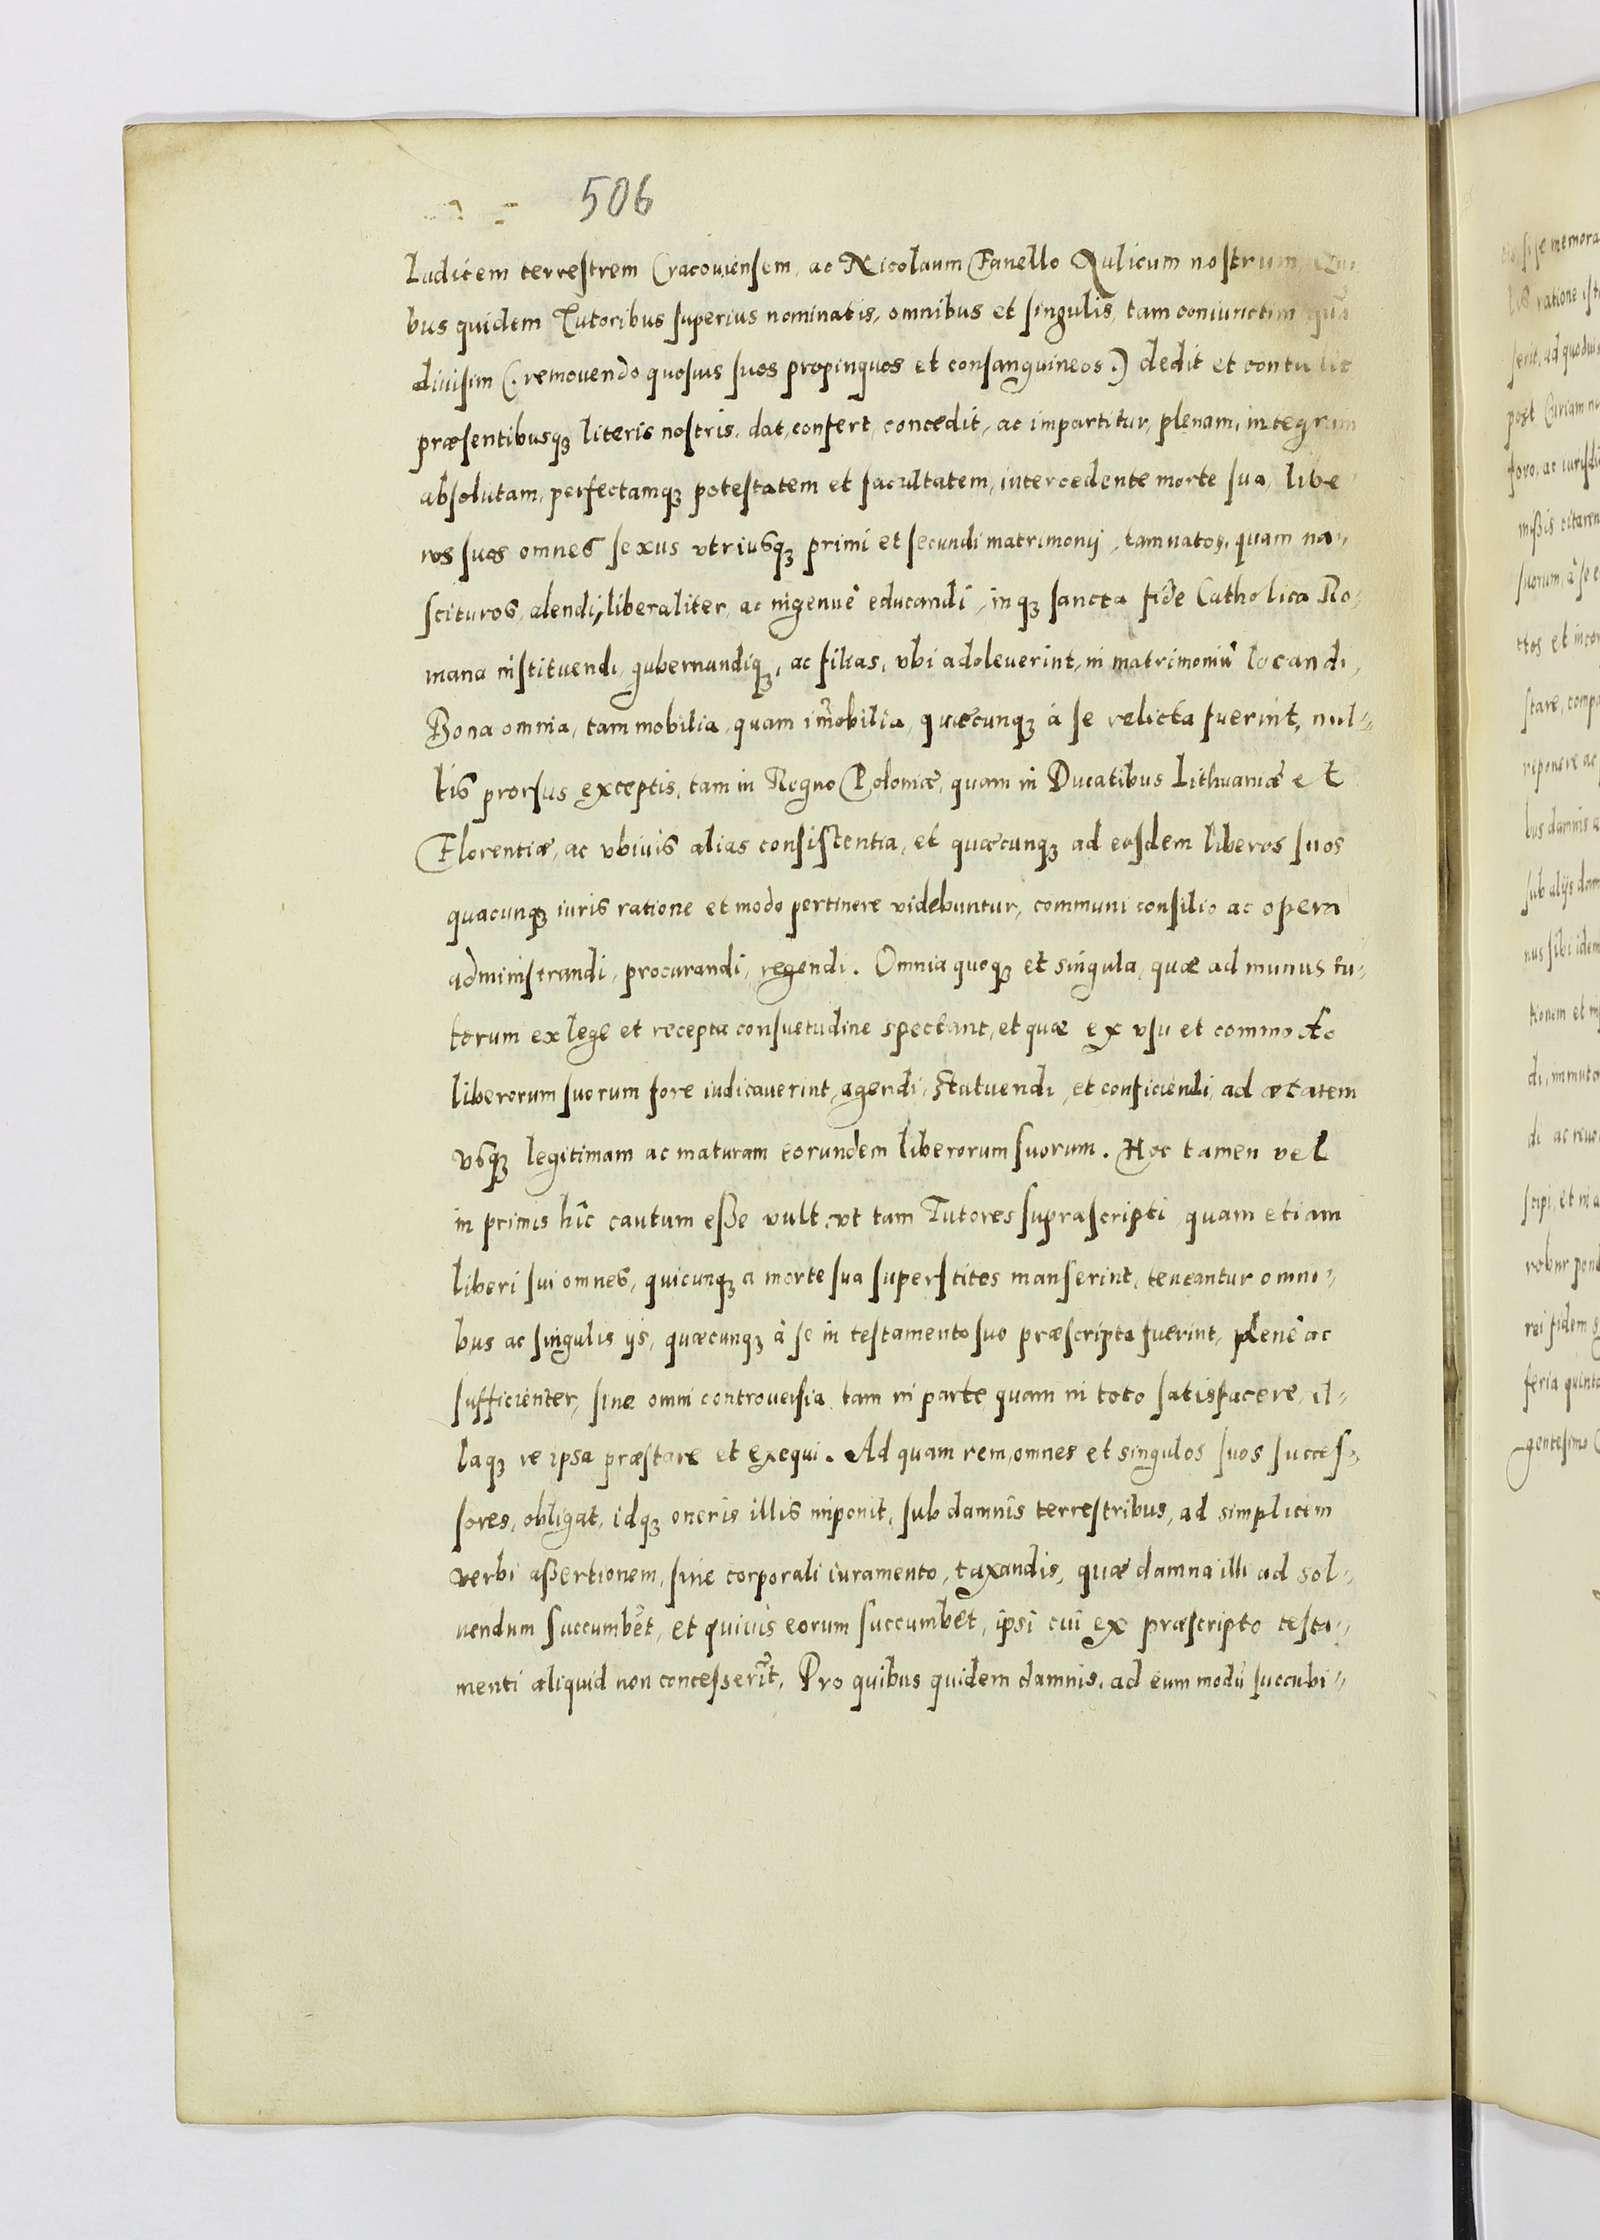 506
Iudicem terrestrem Cracouiensem, ac Nicolaum Fanello Aulicum nostrum, Qui
bus quidem Tutoribus superius nominatis, omnibus et singulis, tam coniunctim quã
diuisim (. remouendo quosuis suos propinquos et consanguineos .) dedit et contulit
præsentibusqȝ literis nostris, dat, confert, concedit, ac impartitur, plenam, integram
absolutam, perfectamqȝ potestatem et facultatem, intercedente morte sua, libe
ros suos omnes sexus vtriusqȝ primi et secundi matrimonij, tam natos, quam na-
scituros, alendi, liberaliter, ac ingenuè educandi, inqȝ sancta fide Catholica Ro-
mana instituendi, gubernandiqȝ, ac filias, vbi adoleuerint, in matrimoniũ locandi,
Bona omnia, tam mobilia, quam im̃obilia, quæcunqȝ à se relicta fuerint, nul-
lis prorsus exceptis, tam in Regno Poloniæ, quam in Ducatibus Lithuaniæ et
Florentiæ, ac vbiuis alias consistentia, et quæcunqȝ ad eosdem liberos suos
quacunqȝ iuris ratione et modo pertinere videbuntur, communi consilio ac opera
administrandi, procurandi, regendi. Omnia quoqȝ et singula, quæ ad munus tu-
torum ex lege et recepta consuetudine spectant, et quæ ex vsu et commodo
liberorum suorum fore iudicauerint, agendi, statuendi, et conficiendi, ad ætatem
vsqȝ legitimam ac maturam eorundem liberorum suorum. Hoc tamen vel
in primis hîc cautum eße vult, vt tam Tutores suprascripti, quam etiam
liberi sui omnes, quicunqȝ a morte sua superstites manserint, teneantur omni-
bus ac singulis ijs, quæcunqȝ à se in testamento suo præscripta fuerint, plenè ac
sufficienter, sine omni controuersia, tam in parte quam in toto satisfacere, il-
laqȝ re ipsa præstare et exequi. Ad quam rem, omnes et singulos suos succes-
sores, obligat, idqȝ oneris illis imponit, sub damnis terrestribus, ad simplicem
verbi aßertionem, sine corporali iuramento, taxandis, quæ damna illi ad sol-
uendum succumbẽt, et quiuis eorum succumbet, ipsi cui ex præscripto testa-
menti aliquid non concesserĩt, Pro quibus quidem damnis, ad eum modũ succubi-